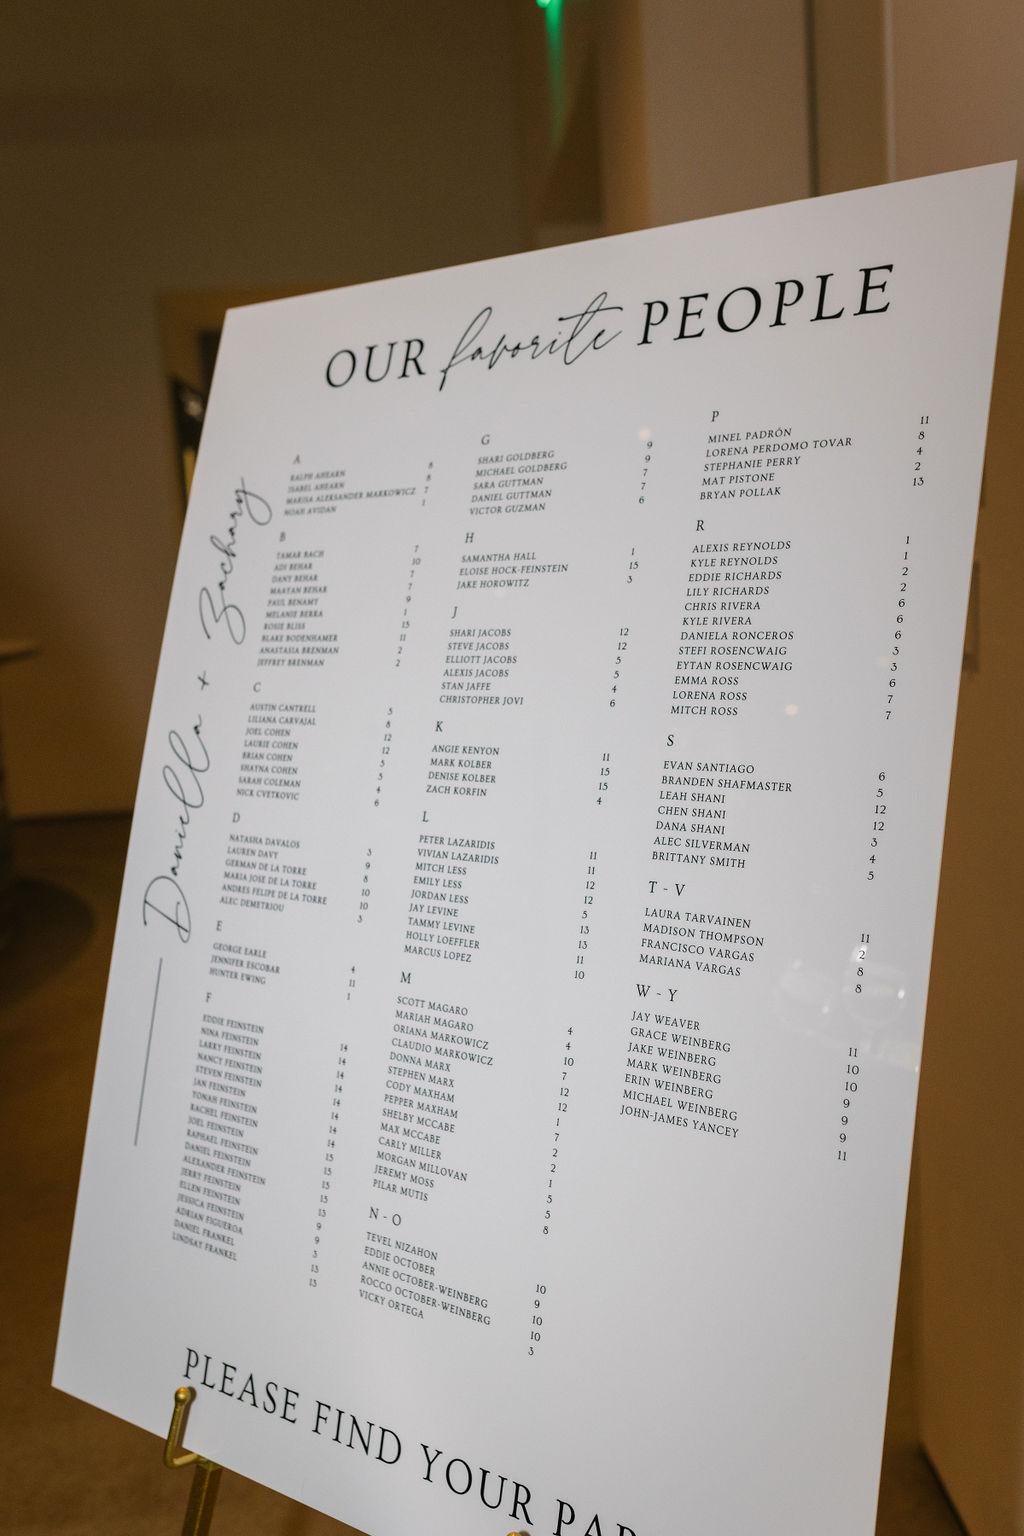 OUR favorite PEOPLE
Daniella + Zachary
A
RALPH AHEARN 8
ISABEL AHEARN 8
MARISA ALEKSANDER MARKOWICZ 7
NOAH AVIDAN 1
B
TAMAR BACH 7
ADI BEHAR 10
DANY BEHAR 7
MAAYAN BEHAR 7
PAUL BENAMY 9
MELANIE BERRA 1
ROSIE BLISS 15
BLAKE BODENHAMER 11
ANASTASIA BRENMAN 2
JEFFREY BRENMAN 2
C
AUSTIN CANTRELL 5
LILIANA CARVAJAL 8
JOEL COHEN 12
LAURIE COHEN 12
BRIAN COHEN 5
SHAYNA COHEN 5
SARAH COLEMAN 4
NICK CVETKOVIC 6
D
NATASHA DAVALOS 3
LAUREN DAVY 9
GERMAN DE LA TORRE 8
MARIA JOSE DE LA TORRE 10
ANDRES FELIPE DE LA TORRE 10
ALEC DEMETRIOU 3
E
GEORGE EARLE 4
JENNIFER ESCOBAR 11
HUNTER EWING 1
F
EDDIE FEINSTEIN 14
NINA FEINSTEIN 14
LARRY FEINSTEIN 14
NANCY FEINSTEIN 14
STEVEN FEINSTEIN 14
JAN FEINSTEIN 14
YONAH FEINSTEIN 14
RACHEL FEINSTEIN 14
JOEL FEINSTEIN 15
RAPHAEL FEINSTEIN 15
DANIEL FEINSTEIN 15
ALEXANDER FEINSTEIN 15
JERRY FEINSTEIN 15
ELLEN FEINSTEIN 9
JESSICA FEINSTEIN 9
ADRIAN FIGUEROA 3
DANIEL FRANKEL 13
LINDSAY FRANKEL 13
G
SHARI GOLDBERG 9
MICHAEL GOLDBERG 9
SARA GUTTMAN 7
DANIEL GUTTMAN 7
VICTOR GUZMAN 6
H
SAMANTHA HALL 1
ELOISE HOCK-FEINSTEIN 15
JAKE HOROWITZ 3
J
SHARI JACOBS 12
STEVE JACOBS 12
ELLIOTT JACOBS 5
ALEXIS JACOBS 5
STAN JAFFE 4
CHRISTOPHER JOVI 6
K
ANGIE KENYON 11
MARK KOLBER 15
DENISE KOLBER 15
ZACH KORFIN 4
L
PETER LAZARIDIS 11
VIVIAN LAZARIDIS 11
MITCH LESS 12
EMILY LESS 12
JORDAN LESS 5
JAY LEVINE 13
TAMMY LEVINE 13
HOLLY LOEFFLER 11
MARCUS LOPEZ 10
M
SCOTT MAGARO 4
MARIAH MAGARO 4
ORIANA MARKOWICZ 10
CLAUDIO MARKOWICZ 7
DONNA MARX 12
STEPHEN MARX 12
CODY MAXHAM 1
PEPPER MAXHAM 7
SHELBY MCCABE 2
MAX MCCABE 2
CARLY MILLER 1
MORGAN MILLOVAN 5
JEREMY MOSS 5
PILAR MUTIS 8
N - O
TEVEL NIZAHON 10
EDDIE OCTOBER 9
ANNIE OCTOBER-WEINBERG 10
ROCCO OCTOBER-WEINBERG 10
VICKY ORTEGA 3
P
MINEL PADRÓN 11
LORENA PERDOMO TOVAR 8
STEPHANIE PERRY 4
MAT PISTONE 2
BRYAN POLLAK 13
R
ALEXIS REYNOLDS 1
KYLE REYNOLDS 1
EDDIE RICHARDS 2
LILY RICHARDS 2
CHRIS RIVERA 6
KYLE RIVERA 6
DANIELA RONCEROS 6
STEFI ROSENCWAIG 3
EYTAN ROSENCWAIG 3
EMMA ROSS 6
LORENA ROSS 7
MITCH ROSS 7
S
EVAN SANTIAGO 6
BRANDEN SHAFMASTER 5
LEAH SHANI 12
CHEN SHANI 12
DANA SHANI 3
ALEC SILVERMAN 4
BRITTANY SMITH 5
T - V
LAURA TARVAINEN 11
MADISON THOMPSON 2
FRANCISCO VARGAS 8
MARIANA VARGAS 8
W - Y
JAY WEAVER 11
GRACE WEINBERG 10
JAKE WEINBERG 10
MARK WEINBERG 9
ERIN WEINBERG 9
MICHAEL WEINBERG 9
JOHN-JAMES YANCEY 11
PLEASE FIND YOUR